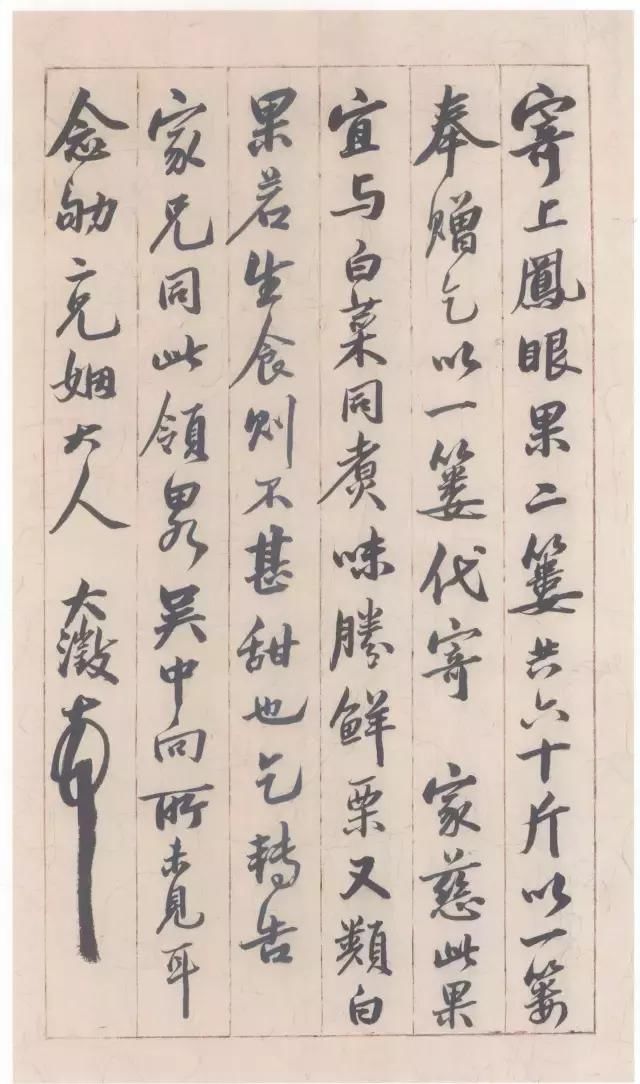 寄上鳳眼果二簍共六十斤以一簍
奉贈乞以一簍代寄 家慈此果
宜与白菜同煮味勝鮮栗又類白
果若生食則不甚甜也乞轉告
家兄同此領略吴中向所未見耳
念劬二兄姻大人 大澂